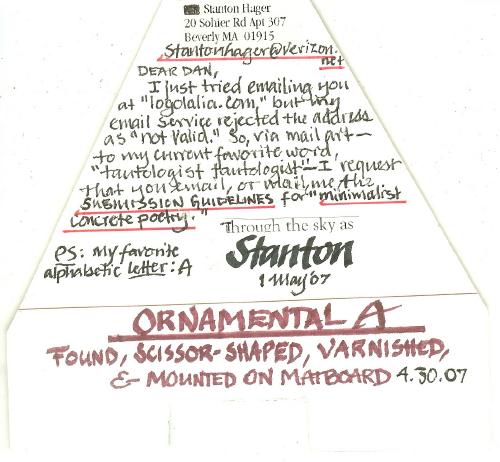 Stanton Hager
20 Sohier Rd Apt 307
Beverly MA 01915
Stantonhager@verizon.
net
DEAR DAN,
I just tried emailing you
at "logolalia.com," but my
email service rejected the address
as "not valid." So, via mail art—
to my current favorite word,
"tautologist tautologist"—I request
that you email, or mail, me the
SUBMISSION GUIDELINES for "minimalist
concrete poetry."
Through the sky as
Stanton
1 May '07
PS: My favorite
alphabetic letter: A
ORNAMENTAL A
FOUND, SCISSOR-SHAPED, VARNISHED,
& MOUNTED ON MATBOARD 4.30.07